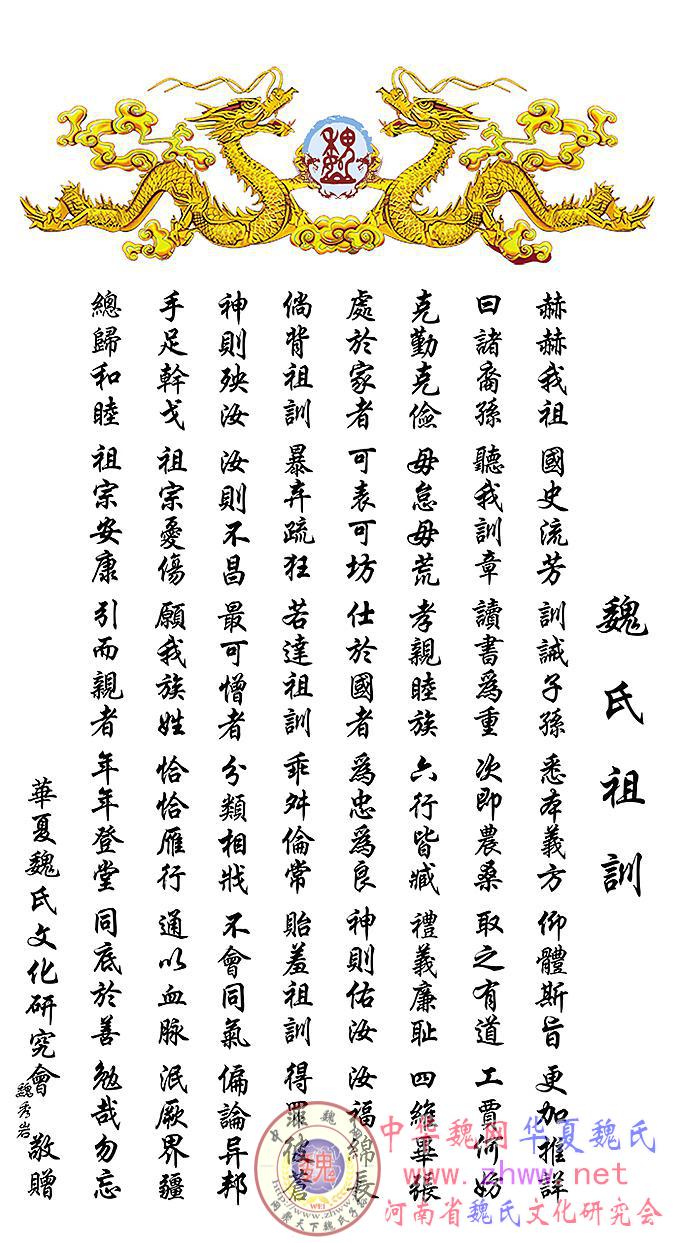 魏
魏氏祖訓
赫赫我祖 國史流芳 訓誡子孫 悉本義方 仰體斯旨 更加推詳
曰諸裔孫 聽我訓章 讀書為重 次即農桑 取之有道 工賈何妨
克勤克儉 毋怠毋荒 孝親睦族 六行皆臧 禮義廉耻 四維畢張
處於家者 可表可坊 仕於國者 為忠為良 神則佑汝 汝福綿長
倘背祖訓 暴弃疏狂 若達祖訓 乖舛倫常 貽羞祖訓 得罪彼蒼
神則殃汝 汝則不昌 最可憎者 分類相戕 不會同氣 偏論异邦
手足幹戈 祖宗憂傷 願我族姓 恰恰雁行 通以血脉 泯厥界疆
總歸和睦 祖宗安康 引而親者 年年登堂 同底於善 勉哉勿忘
華夏魏氏文化研究會 敬贈
魏秀岩
中华魏网华夏魏氏
www.zhww.net
河南省魏氏文化研究会
魏
WEI